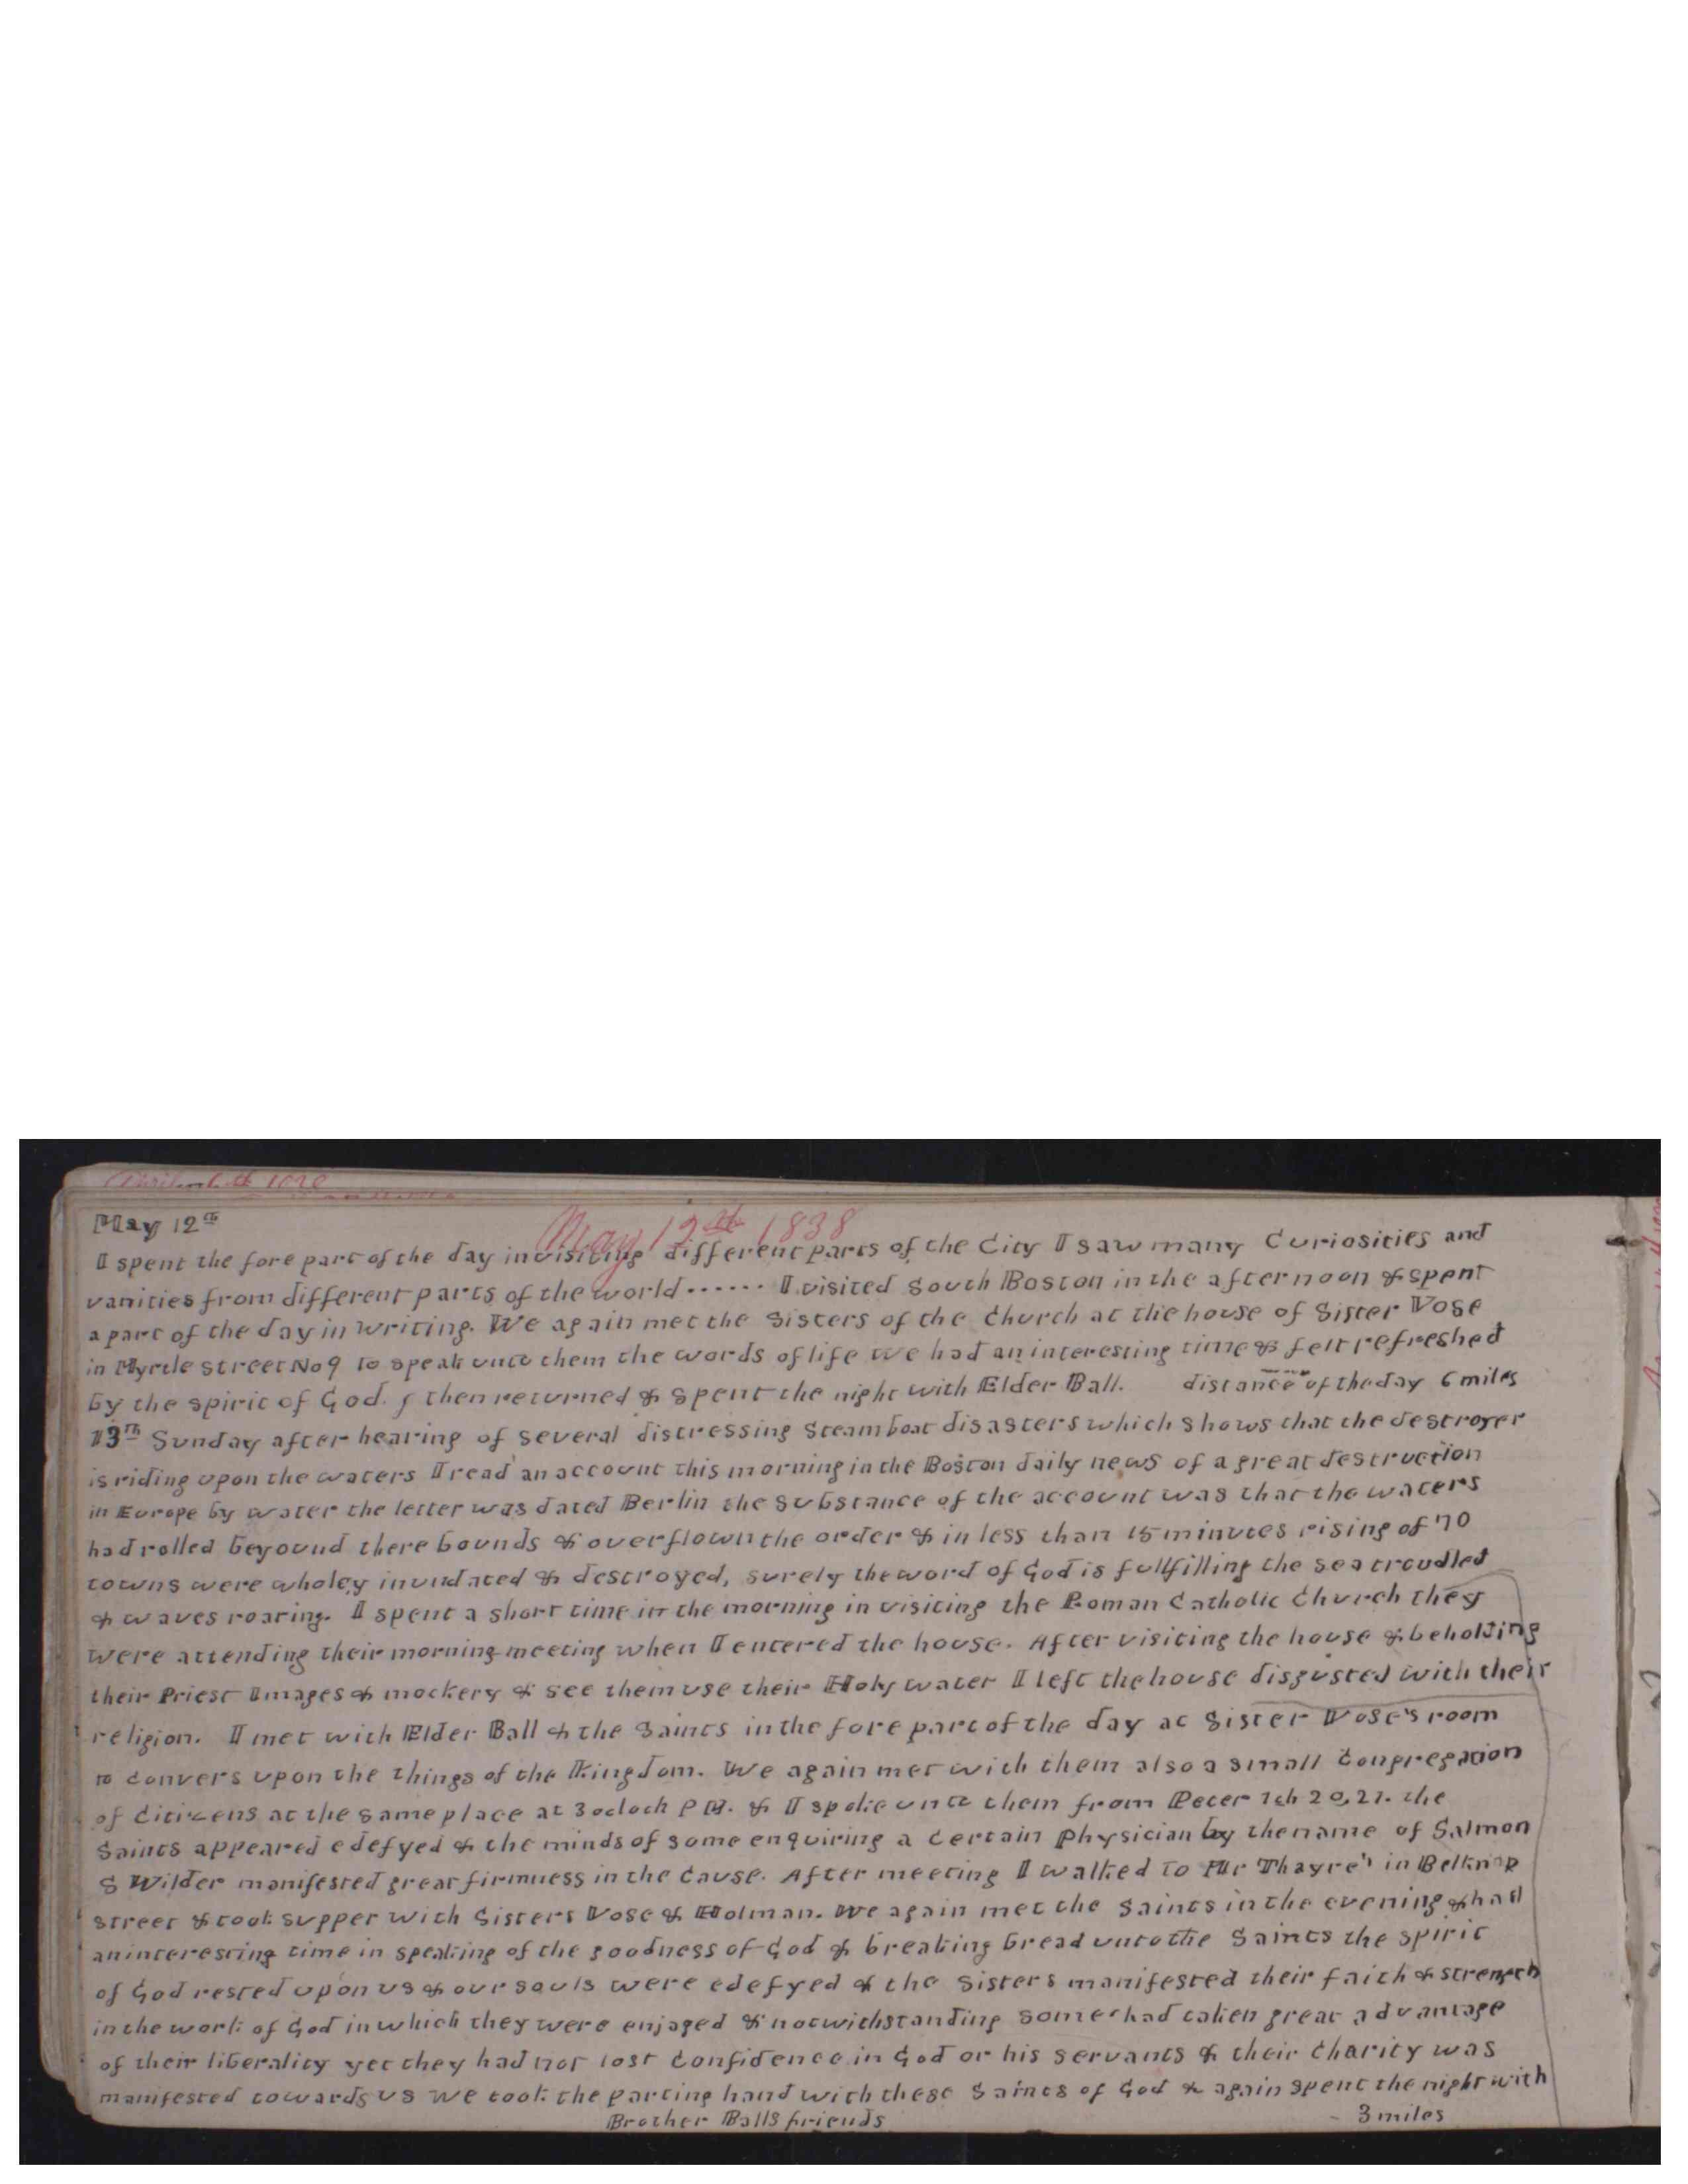 May 12th 1838
May 12th
I spent the fore part of the day in visiting different parts of the City I saw many Curiosities and
vanities from different parts of the world ...... I visited South Boston in the afternoon & spent
a part of the day in writing. We again met the Sisters of the Church at the house of Sister Vose
in Myrtle street No 9 to speak unto them the words of life we had an interesting time & felt refreshed
by the spirit of God. I then returned & spent the night with Elder Ball. distance of the day 6 miles
13th Sunday after hearing of several distressing Steam boat disasters which shows that the destroyer
is riding upon the waters I read an account this morning in the Boston daily news of a great destruction
in Europe by water the letter was dated Berlin the Substance of the account was that the waters
had rolled beyound there bounds & overflown the order & in less than 15 minutes rising of 70
towns were wholey inundated & destroyed, surely the word of God is fullfilling the sea troudled
& waves roaring. I spent a short time in the morning in visiting the Roman Catholic Church they
were attending their morning meeting when I entered the house. After visiting the house & beholding
their Priest Images & mockery & see them use their Holy water I left the house disgusted with their
religion. I met with Elder Ball & the Saints in the fore part of the day at Sister Vose's room
to convers upon the things of the Kingdom. We again met with them also a small Congregation
of Citizens at the same place at 3 oclock P M. & I spoke unto them from Peter 1ch 20,21. the
Saints appeared edefyed & the minds of some enquiring a Certain Physician by the name of Salmon
S Wilder manifested great firmness in the Cause. After meeting I walked to Mr Thayre's in Belknap
street & took supper with Sisters Vose & Holman. We again met the Saints in the evening & had
an interesting time in speaking of the goodness of God & breaking bread unto the Saints the spirit
of God rested upon us & our souls were edefyed & the Sisters manifested their faith & strength
in the work of God in which they were enjaged & notwithstanding some had taken great advantage
of their liberality yet they had not lost Confidence in God or his servants & their Charity was
manifested towards us We took the parting hand with these Saints of God & again spent the night with
Brother Balls friends 3 miles